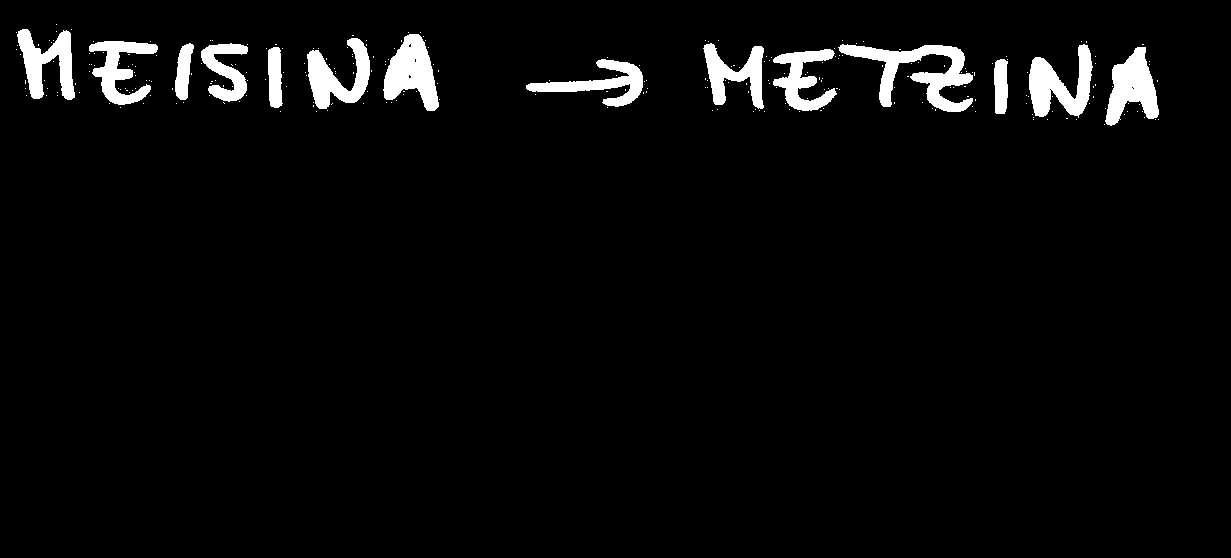 MEISINA → METZINA